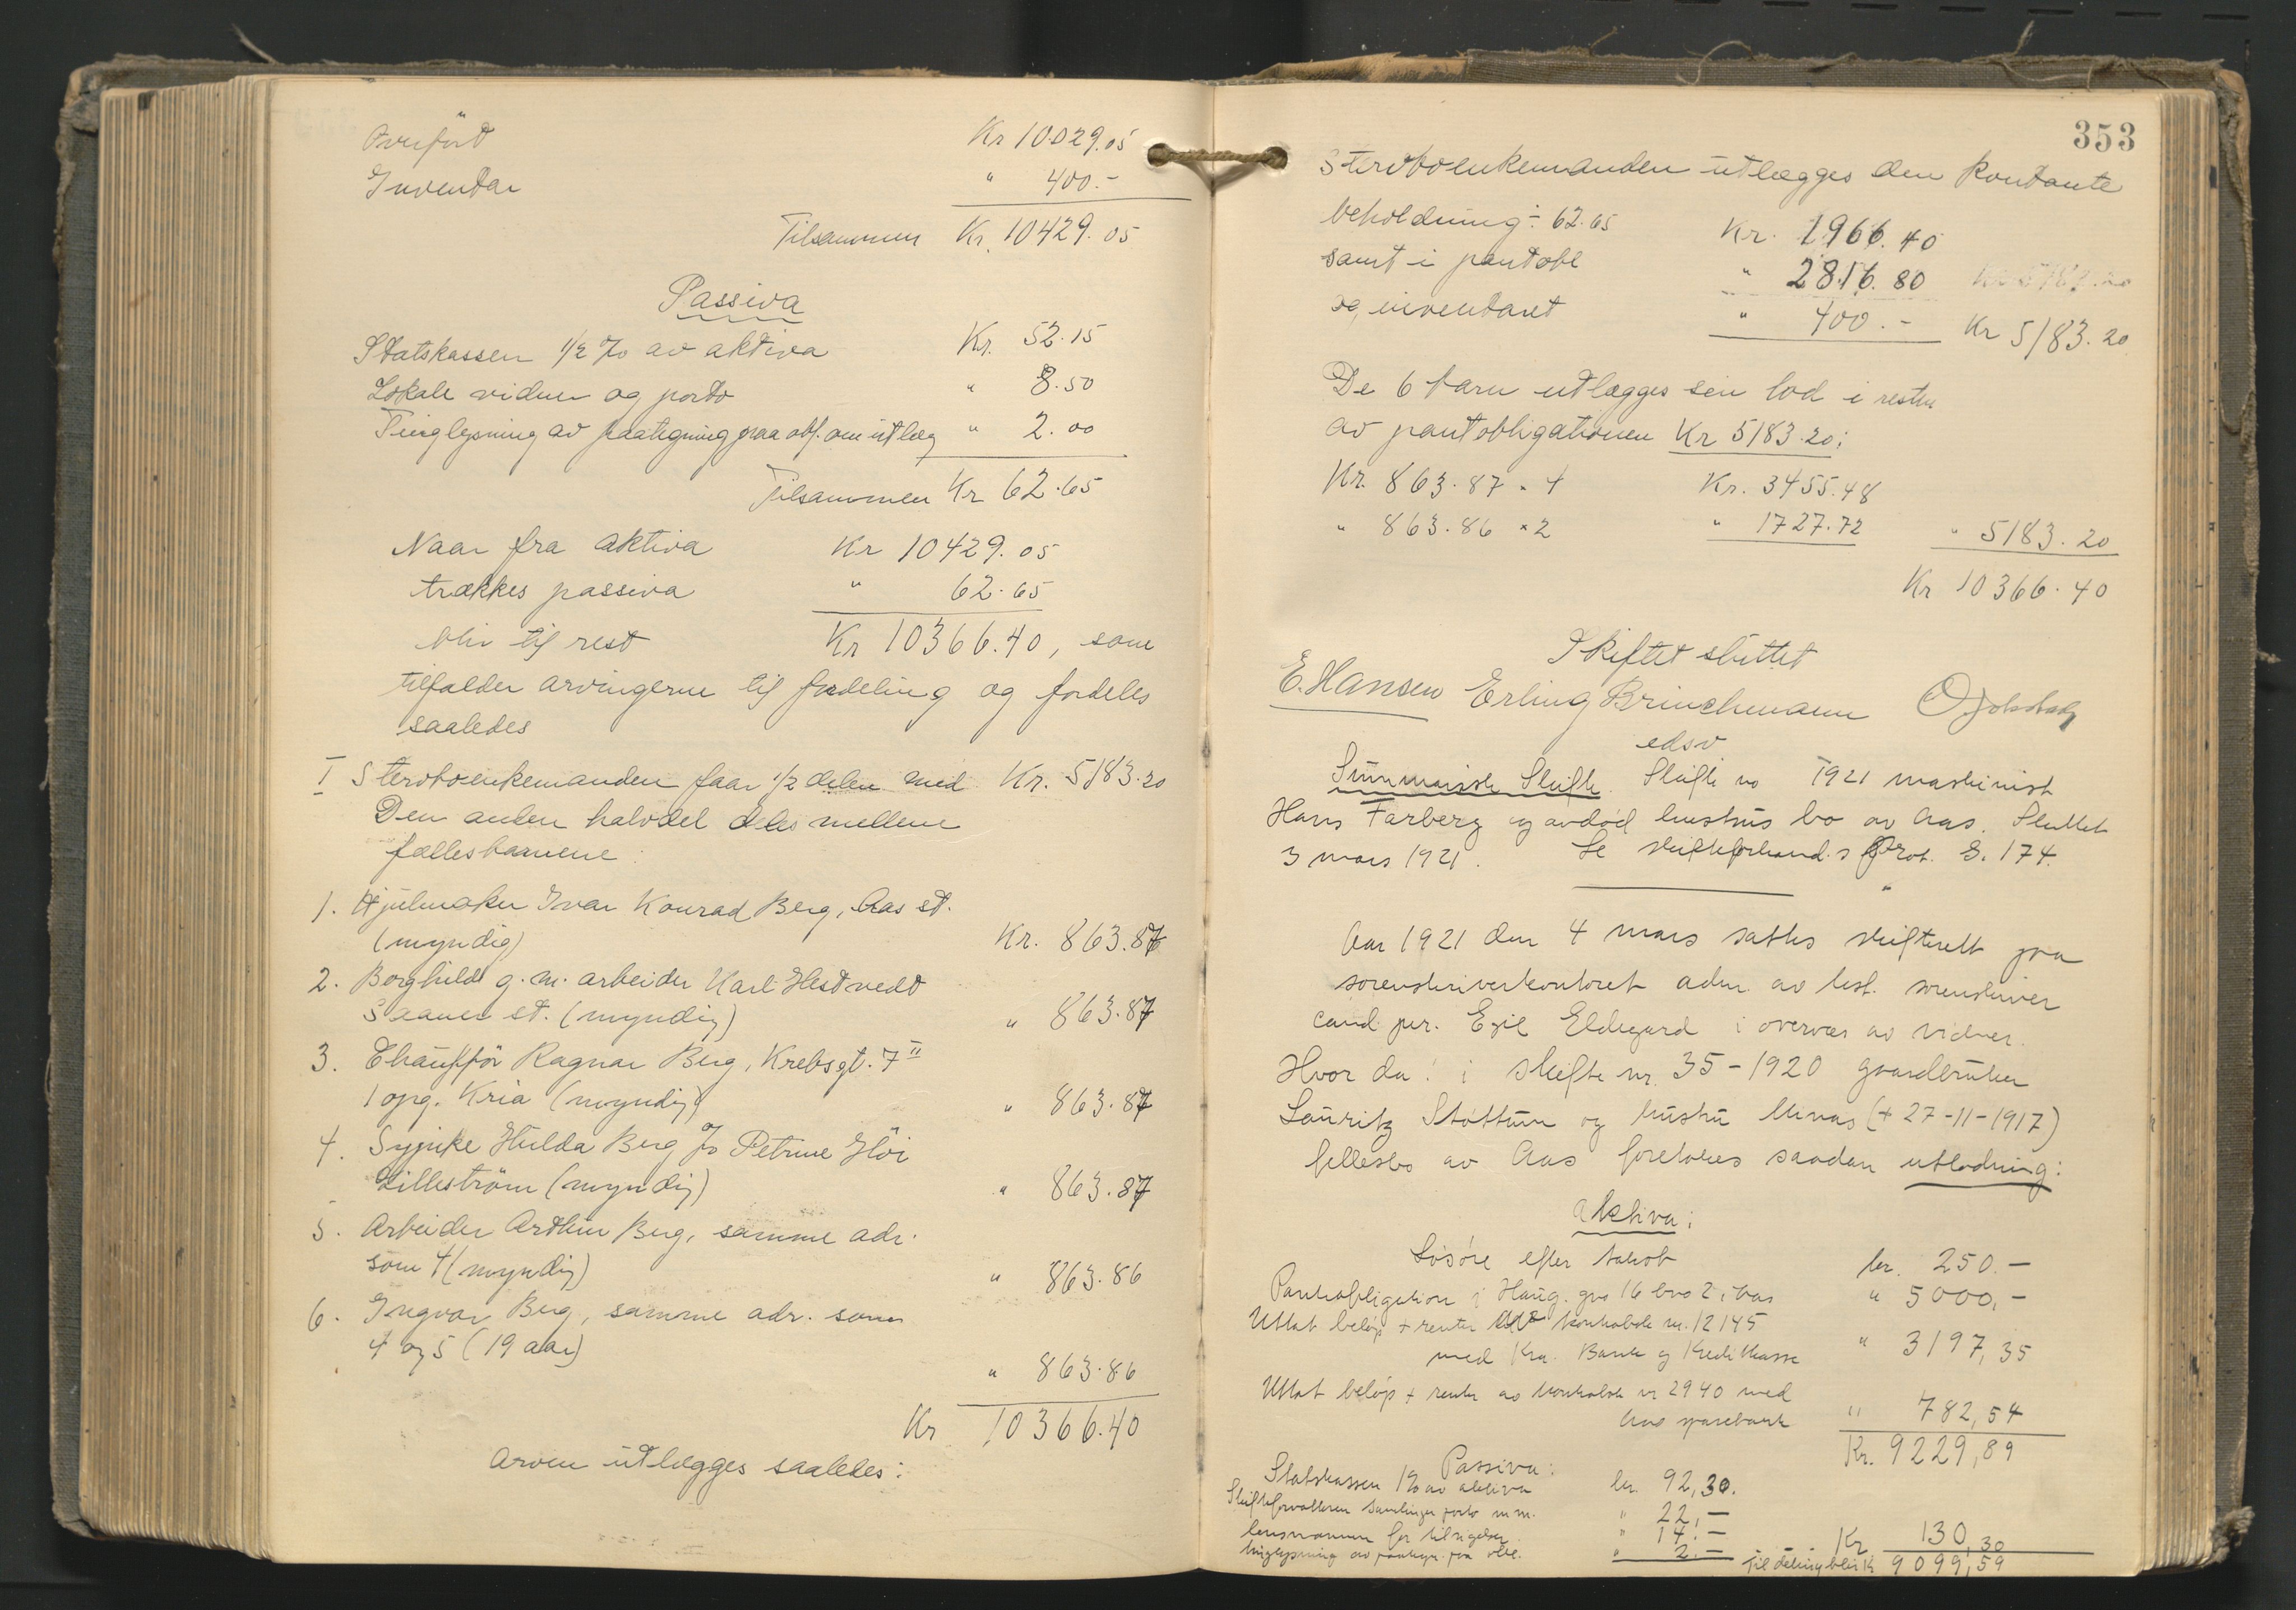 Overført Kr 10029.05
Inventar " 400.-
Tilsammen Kr. 10429.05
Passiva
Statskassen 1/2 % av aktiva Kr. 52.15
Lokale vidner og porto " 8.50
Tinglysning av paategning paa obl. om utlæg " 2.00
Tilsammen Kr 62.65
Naar fra aktiva Kr 10429.05
trækkes passiva " 62.65
bliv til rest Kr 10366.40, som
tilfalder arvingerne til fordeling og fordeles
saaledes
I Stervboenkemanden faar 1/2 delen med Kr. 5183.20
Den anden halvdel deles mellem
fællesbarnene:
1. Hjulmaker Ivar Konrad Berg, Aas st.
(myndig) Kr. 863.87
2. Borghild g.m. arbeider Karl Hestvedt
Saaner st. (myndig) " 863.87
3. Chauffør Ragnar Berg, Krebsgt. 7 II
1 opg. Kria (myndig) " 863.87
4. Sypike Hulda Berg Petrine Høi
Lillestrøm (myndig) " 863.87
5. Arbeider Arthur Berg, samme adr.
som 4 (myndig) " 863.86
6. Ingvar Berg, samme adr. som
4 og 5 (19 aar) " 863.86
Kr 10366.40
Arven utlægges saaledes:
353
Stervboenkemanden utlægges den kontante
beholdning ÷ 62.65 Kr. 1966.40
samt i pantobl " 2816.80
og inventaret " 400.- Kr 5183.20
De 6 barn utlægges sin lod i resten
av pantobligationen Kr 5183.20:
Kr. 863.87 × 4 Kr. 3455.48
" 863.86 × 2 " 1727.72 " 5183.20
Kr 10366.40
Skiftet sluttet
E. Hansen Erling Brinchmann
edsv
Summarisk Skifte. Skifte no 1921 maskinist
Hans Farberg og avdød hustrus bo av Aas. Sluttet
3 mars 1921. Se skifteforhand.s prot. S. 174.
Aar 1921 den 4 mars sattes skifterett paa
sorenskriverkontoret adm. av best. sorenskriver
cand. jur. Egil Eldegard i overvær av vidner.
Hvor da: i skifte nr. 35-1920 gaardbruker
Lauritz Støttum og hustru Minas (+ 27-11-1917)
fellesbo av Aas foretokes saadan utlodning:
Aktiva:
Løsøre efter takst kr. 250.-
Pantobligation i Haug. gno 16 bno 2 i Aas " 5000,-
Uttat beløp + renter kontrabok nr. 12145
med Kra. Bank og Kreditkasse " 3197,35
Uttat beløp + renter av kontrabok nr 2940 med
Aas sparebank " 782,54
Kr. 9229,89
Passiva:
Statskassen 1% av aktiva kr. 92,30.
Skifteforvalteren samlinger porto m.m. " 22,-
lensmannen for tilsigelser " 14.-
tinglysning av paategn. paa obl. " 2.- Kr 130,30
Til deling blir K 9099,59